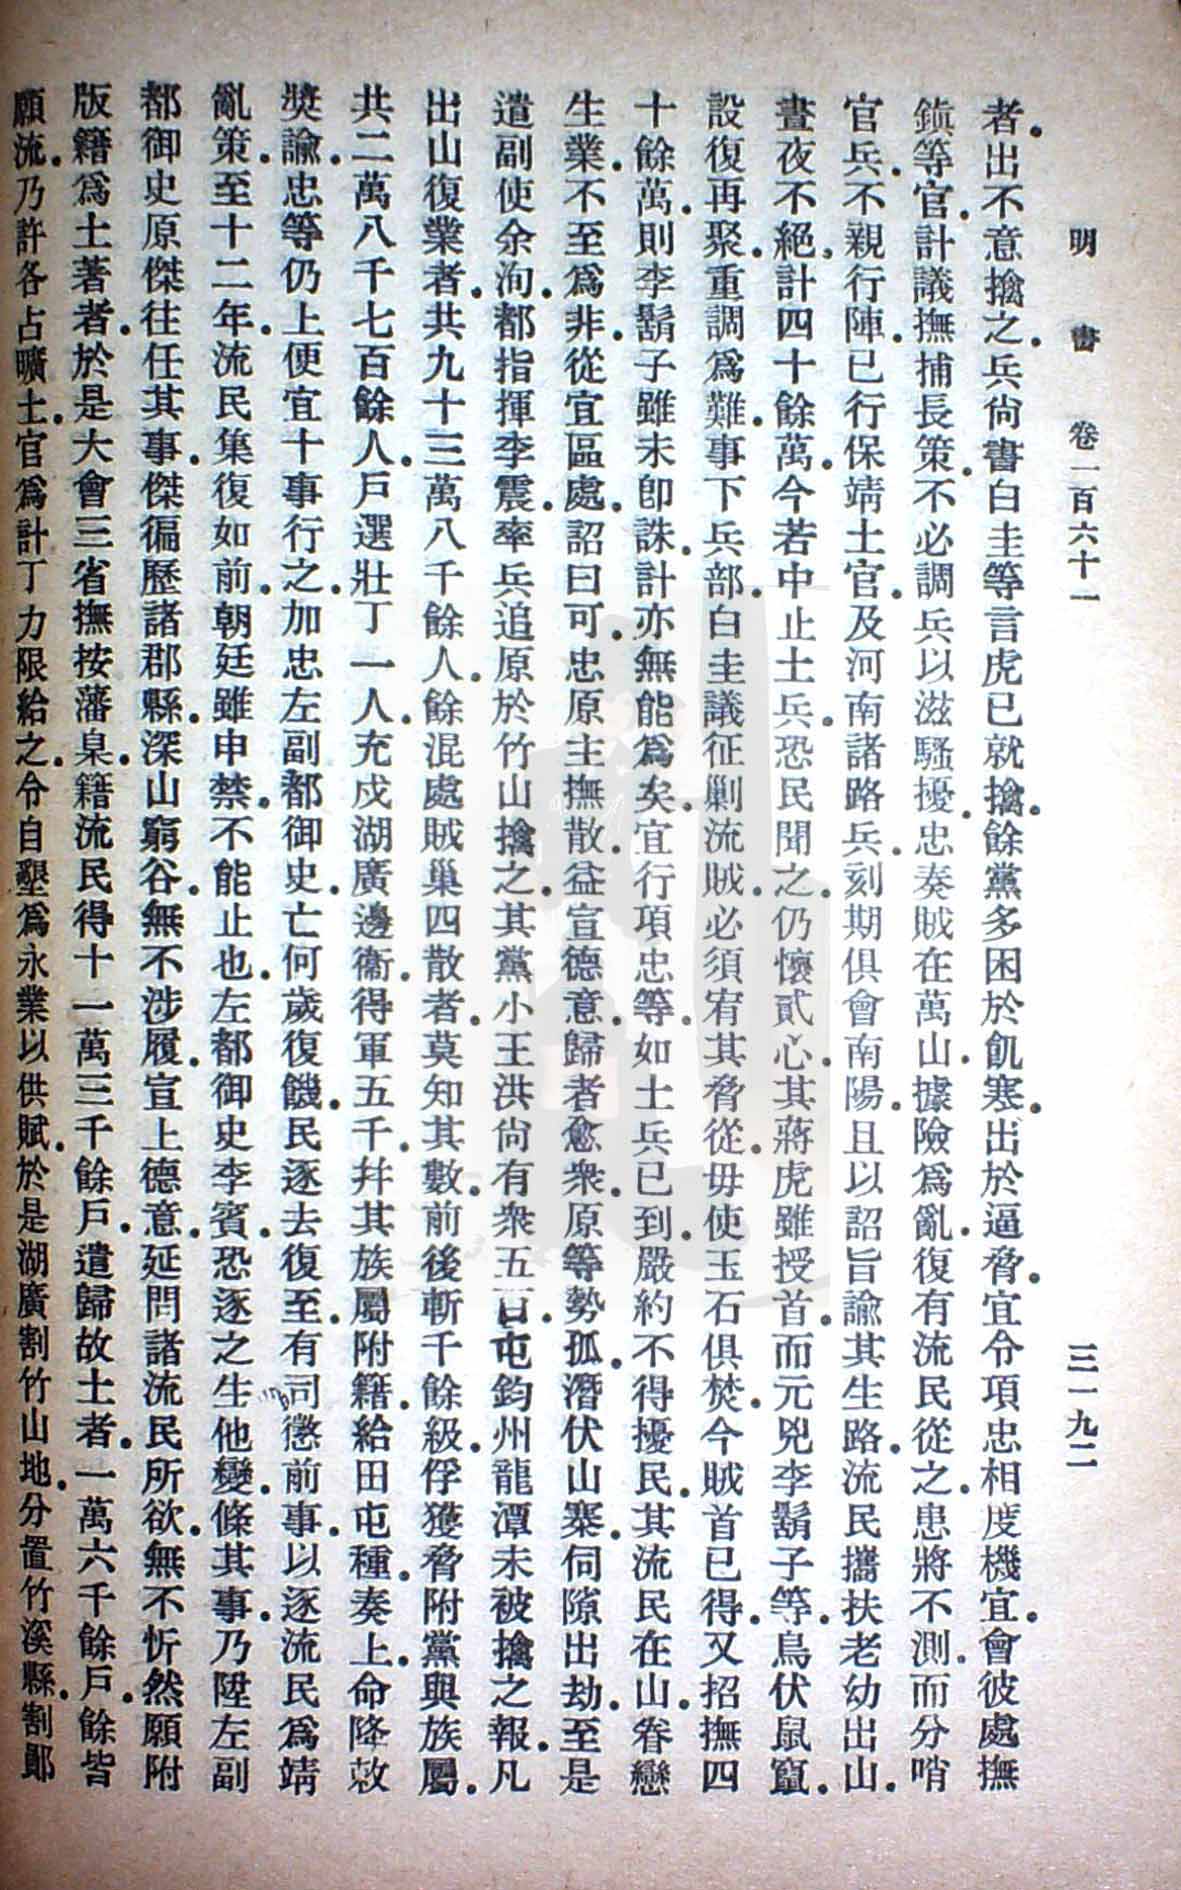 明書 卷一百六十一 三一九二
者出不意擒之兵尚書白圭等言虎已就擒餘黨多困於飢寒出於逼脅宜令項忠相度機宜會彼處撫
鎮等官計議撫捕長策不必調兵以滋騷擾忠奏賊在萬山據險為亂復有流民從之患將不測而分哨
官兵不親行陣已行保靖土官及河南諸路兵刻期俱會南陽且以詔旨諭其生路流民攜扶老幼出山
晝夜不絕計四十餘萬今若中止土兵恐民聞之仍懷貳心其蔣虎雖授首而元兇李鬍子等鳥伏鼠竄
設復再聚重調為難事下兵部白圭議征剿流賊必須宥其脅從毋使玉石俱焚今賊首已得又招撫四
十餘萬則李鬍子雖未卽誅計亦無能為矣宜行項忠等如土兵已到嚴約不得擾民其流民在山眷戀
生業不至為非從宜區處詔曰可忠原主撫散益宣德意歸者愈衆原等勢孤潛伏山寨伺隙出劫至是
遣副使余洵都指揮李震率兵追原於竹山擒之其黨小王洪尚有衆五百屯鈞州龍潭未被擒之報凡
出山復業者共九十三萬八千餘人餘混處賊巢四散者莫知其數前後斬千餘級俘獲脅附黨與族屬
共二萬八千七百餘人戶選壯丁一人充戍湖廣邊衞得軍五千幷其族屬附籍給田屯種奏上命降敕
獎諭忠等仍上便宜十事行之加忠左副都御史亡何歲復饑民逐去復至有司懲前事以逐流民為靖
亂策至十二年流民集復如前朝廷雖申禁不能止也左都御史李賓恐逐之生他變條其事乃陞左副
都御史原傑往任其事傑徧歷諸郡縣深山窮谷無不涉履宣上德意延問諸流民所欲無不忻然願附
版籍為土著者於是大會三省撫按藩臬籍流民得十一萬三千餘戶遣歸故土者一萬六千餘戶餘皆
願流乃許各占曠土官為計丁力限給之令自墾為永業以供賦於是湖廣割竹山地分置竹溪縣割鄖